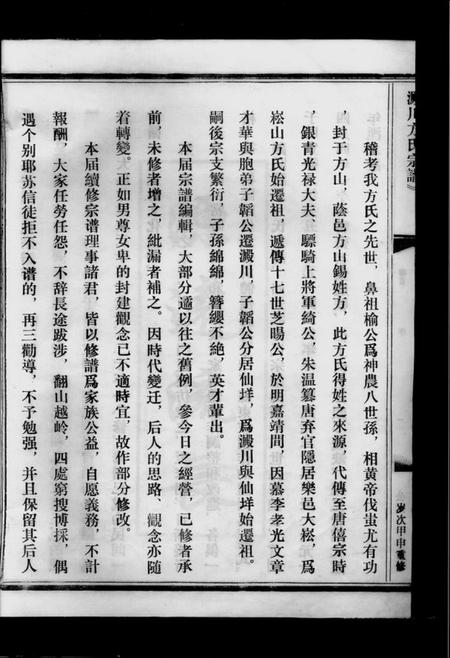 澱川方氏宗譜
歲次甲申重修
稽考我方氏之先世，鼻祖榆公爲神農八世孫，相黃帝伐蚩尤有功
，封于方山，蔭邑方山錫姓方，此方氏得姓之來源，代傳至唐僖宗時
，銀青光禄大夫、驃騎上將軍綺公，朱温篡唐弃官隱居樂邑大崧，爲
崧山方氏始遷祖，遞傳十七世芝暘公，於明嘉靖間世，因慕李孝光文章
才華與胞弟子韜公遷澱川，子韜公分居仙垟，爲澱川與仙垟始遷祖。
嗣後宗支繁衍，子孫綿綿，簪纓不絶，英才輩出。
本届宗譜編輯，大部分遁以往之舊例，參今日之經營，已修者承
前，未修者增之，紕漏者補之。因時代變迁，后人的思路、觀念亦随
着轉變。正如男尊女卑的封建觀念已不適時宜，故作部分修改。
本届續修宗譜理事諸君，皆以修譜爲家族公益，自愿義務，不計
報酬，大家任勞任怨，不辞長途跋涉，翻山越岭，四處窮搜博採，偶
遇个别耶苏信徒拒不入谱的，再三勸導，不予勉强，并且保留其后人